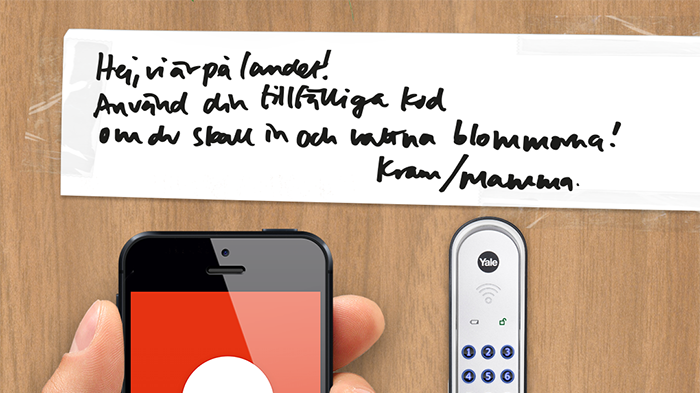 Hej, vi är på landet!
Använd din tillfälliga kod
om du skall in och vattna blommorna!
Kram/mamma.
Yale
1 2 3
4 5 6